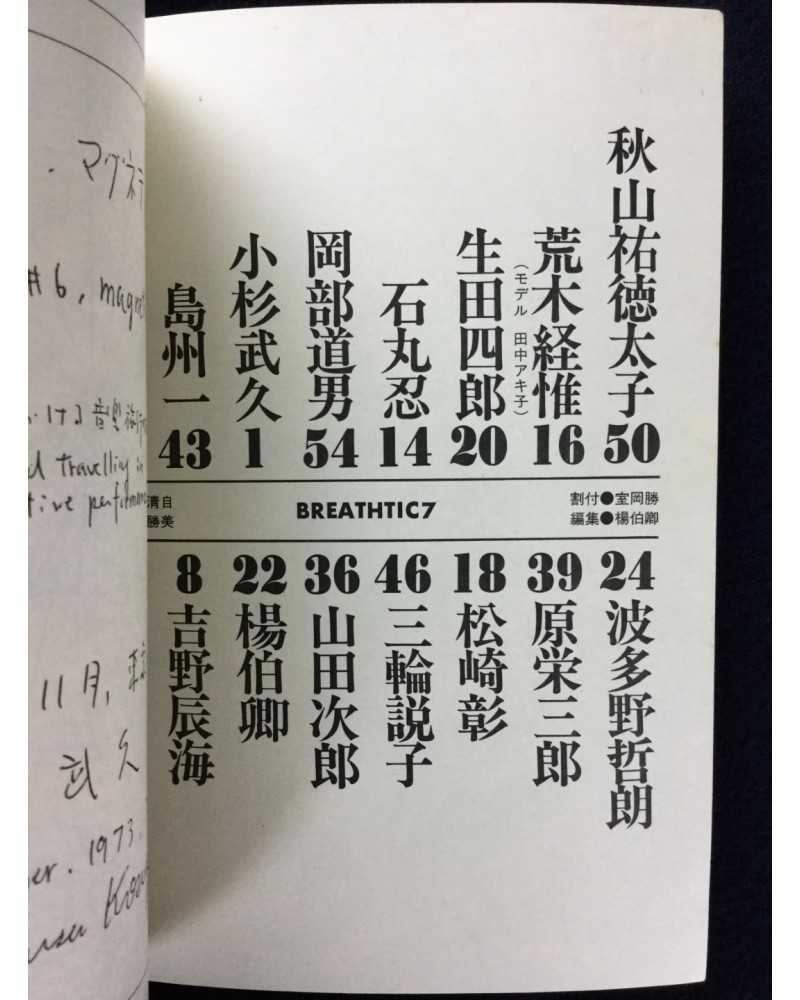 秋山祐徳太子 50
荒木経惟 16
（モデル 田中アキ子）
生田四郎 20
石丸忍 14
岡部道男 54
小杉武久 1
島州一 43
割付●室岡勝
編集●楊伯卿
BREATHTIC7
清自
勝美
24 波多野哲朗
39 原栄三郎
18 松崎彰
46 三輪説子
36 山田次郎
22 楊伯卿
8 吉野辰海
マグネ
#6, magne
ける音楽
travelling in
tive performan
11月, 東
武久
er. 1973.